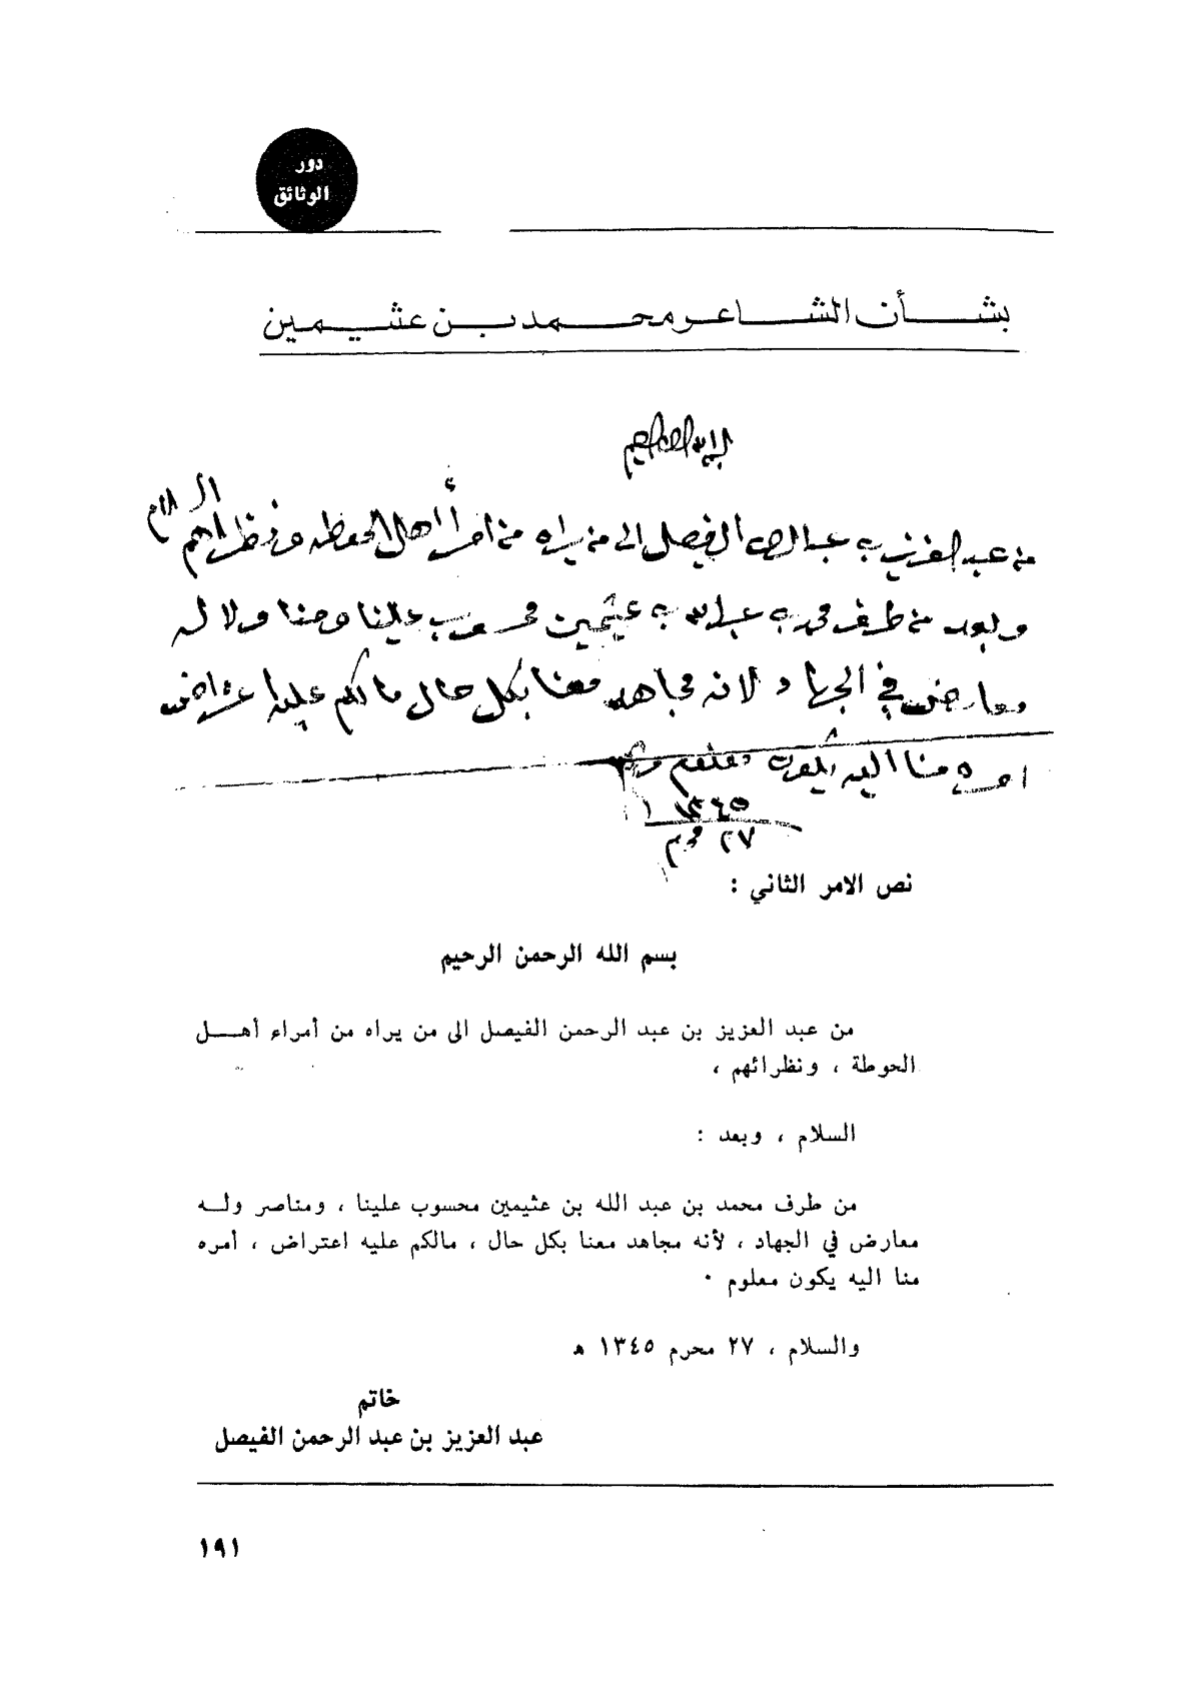 دور
الوثائق
بشأن الشاعر محمد بن عثيمين
من عبد العزيز بن عبد الرحمن الفيصل الى من يراه من امراء أهل الحوطه ونظراهم السلام
وبعد من طرف محمد بن عبد الله بن عثيمين محسوب علينا ومنا ولا له
معارض في الجهاد لانه مجاهد معنا بكل حال مالكم عليه اعتراض
امره منا اليه يكون
١٣٤٥
٢٧ محرم
نص الامر الثاني :
بسم الله الرحمن الرحيم
من عبد العزيز بن عبد الرحمن الفيصل الى من يراه من أمراء أهـــل
الحوطة ، ونظرائهم ،
السلام ، وبعد :
من طرف محمد بن عبد الله بن عثيمين محسوب علينا ، ومناصر ولــه
معارض في الجهاد ، لأنه مجاهد معنا بكل حال ، مالكم عليه اعتراض ، أمره
منا اليه يكون معلوم ٠
والسلام ، ٢٧ محرم ١٣٤٥ هـ
خاتم
عبد العزيز بن عبد الرحمن الفيصل
١٩١